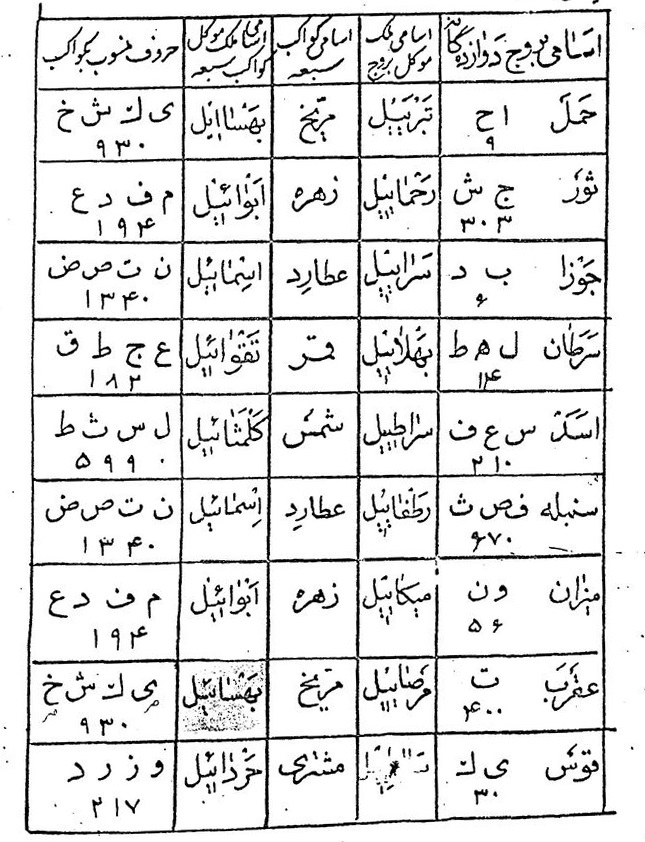 اسامی بروج دوازده گانه | اسامی ملک موکل بروج | اسامی کواکب سبعه | اسامی ملک موکل کواکب سبعه | حروف منسوب بکواکب
حَمَل ا ح ۹ | تبرییل | مریخ | بهساایل | ی ک ش خ ۹۳۰
ثور ج ش ۳۰۳ | رحماییل | زهره | ابوائیل | م ف د ع ۱۹۴
جوزا ب د ۶ | سراییل | عطارد | اسمائیل | ن ت ص ض ۱۳۴۰
سرطان ل ه ط ۱۴ | بهلاییل | قمر | تقوائیل | ع ج ط ق ۱۸۲
اسد س ع ف ۲۱۰ | سراطییل | شمس | کلمثائیل | ل س ث ط ۵۹۹۰
سنبله ف ص ث ۶۷۰ | رطفاییل | عطارد | اسمائیل | ن ت ص ض ۱۳۴۰
میزان و ن ۵۶ | میکاییل | زهره | ابوائیل | م ف د ع ۱۹۴
عقرب ت ۴۰۰ | مرصاییل | مریخ | بهساییل | ی ک ش خ ۹۳۰
قوس ی ک ۳۰ | مشتری | خرداییل | و ز ر د ۲۱۷